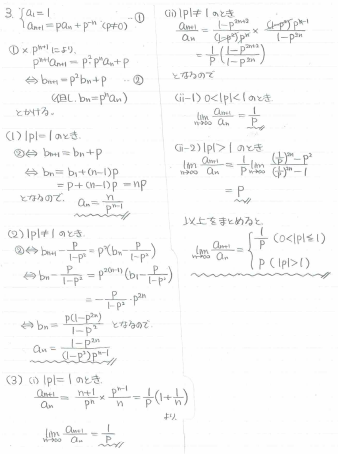 3. { a₁ = 1
a_{n+1} = pa_n + p^{-n} (p≠0) —①
① × p^{n+1} により,
p^{n+1}a_{n+1} = p²p^n a_n + p
⇔ b_{n+1} = p²b_n + p …②
(但し、b_n = p^n a_n)
とかける。
(1) |p| = 1 のとき
② ⇔ b_{n+1} = b_n + p
⇔ b_n = b₁ + (n-1)p
= p + (n-1)p = np
となるので、 a_n = n/p^{n-1}
(2) |p| ≠ 1 のとき
② ⇔ b_{n+1} - p/(1-p²) = p²(b_n - p/(1-p²))
⇔ b_n - p/(1-p²) = p^{2(n-1)}(b₁ - p/(1-p²))
= -p/(1-p²)・p^{2n}
⇔ b_n = p(1-p^{2n})/(1-p²) となるので
a_n = (1-p^{2n})/((1-p²)p^{n-1})
(3) (i) |p| = 1 のとき
a_{n+1}/a_n = (n+1)/p^n × p^{n-1}/n = 1/p (1 + 1/n)
より、
lim_{n→∞} a_{n+1}/a_n = 1/p
(ii) |p| ≠ 1 のとき
a_{n+1}/a_n = (1-p^{2n+2})/((1-p²)p^n) × ((1-p²)p^{n-1})/(1-p^{2n})
= 1/p ((1-p^{2n+2})/(1-p^{2n}))
となるので
(ii-1) 0<|p|<1 のとき
lim_{n→∞} a_{n+1}/a_n = 1/p
(ii-2) |p|>1 のとき
lim_{n→∞} a_{n+1}/a_n = 1/p lim_{n→∞} ((1/p)^{2n} - p²)/((1/p)^{2n} - 1)
= p
以上をまとめると
lim_{n→∞} a_{n+1}/a_n = { 1/p (0<|p|≦1)
p (|p|>1)